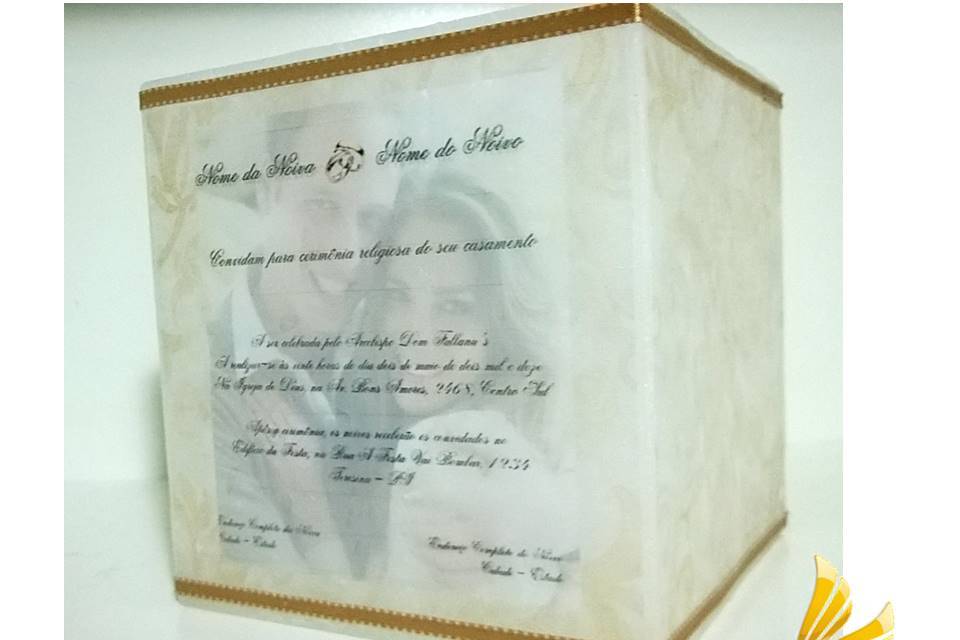 Nome da Noiva Nome do Noivo
Convidam para cerimônia religiosa do seu casamento
A ser celebrada pelo Arcebispo Dom Fullanu's
A realizar-se às vinte horas do dia dois de maio de dois mil e doze
Na Igreja de Deus, na Av. Bons Amores, 2468, Centro Sul
Após a cerimônia, os noivos receberão os convidados no
Edifício da Festa, na Rua A Festa Vai Bombar, 1234
Teresina - PI
Endereço Completo da Noiva
Cidade - Estado
Endereço Completo do Noivo
Cidade - Estado